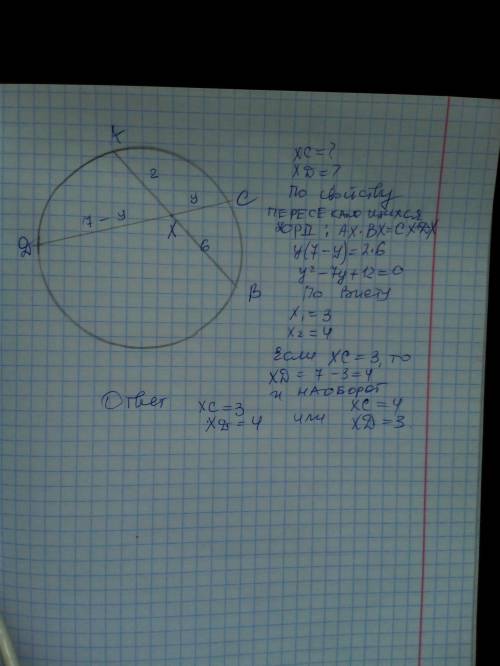 A
2
y
C
7 - y
X
D
6
B
XC = ?
XD = ?
По свойству
ПЕРЕСЕКАЮЩИХСЯ
ХОРД: AX·BX=CX·DX
y(7-y)=2·6
y²-7y+12=0
По Виету
x₁=3
x₂=4
Если XC=3, то
XD = 7-3=4
и НАОБОРОТ
Ответ XC=3 XC=4
XD=4 или XD=3